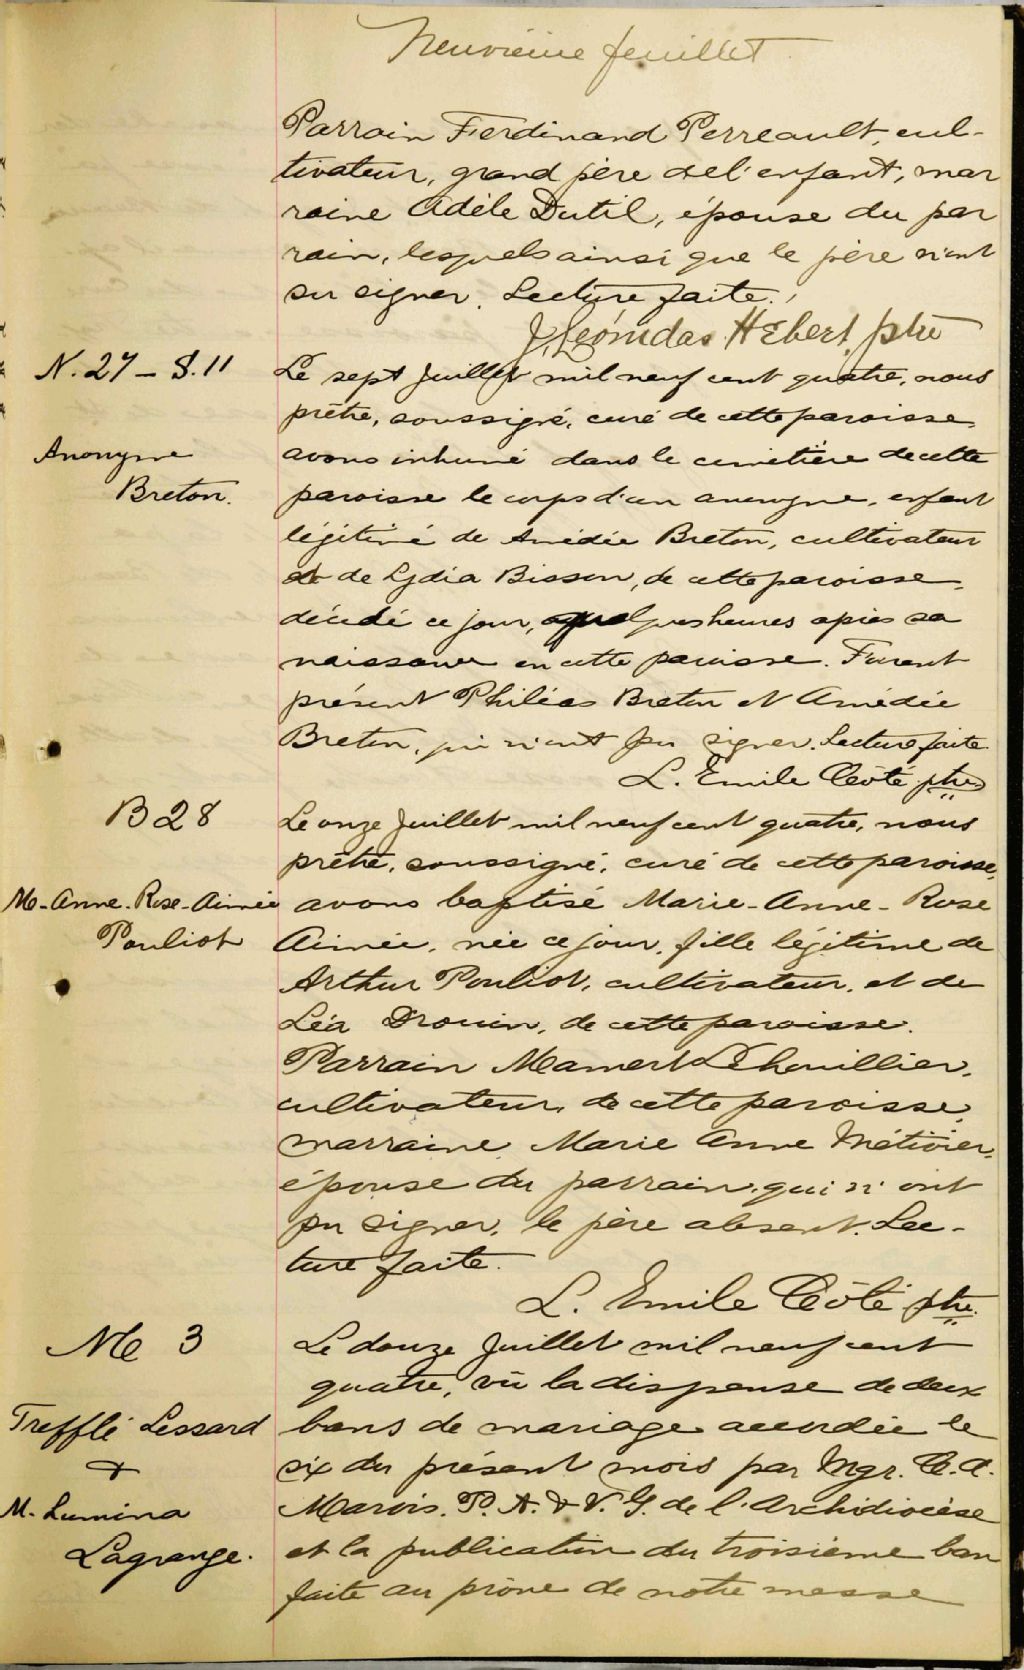 Neuvième feuillet
Parrain Ferdinand Perreault, cul-
tivateur, grand père de l'enfant, mar
raine Adèle Dutil, épouse du par
rain, lesquels ainsi que le père n'ont
su signer. Lecture faite.
J. Léonidas Hébert, ptre
N. 27 - S. 11
Le sept Juillet mil neuf cent quatre, nous
prêtre, soussigné, curé de cette paroisse
Anonyme
avons inhumé dans le cimetière de cette
Breton.
paroisse le corps d'un anonyme, enfant
légitime de Amédée Breton, cultivateur
et de Lydia Bisson, de cette paroisse,
décédé ce jour, quelques heures après sa
naissance en cette paroisse. Furent
présent Philéas Breton et Amédée
Breton, qui n'ont pu signer. Lecture faite.
L. Emile Côté ptre
B 28
Le onze Juillet mil neuf cent quatre, nous
prêtre, soussigné, curé de cette paroisse,
M-Anne-Rose-Aimée
avons baptisé Marie-Anne-Rose
Pouliot
Aimée, née ce jour, fille légitime de
Arthur Pouliot, cultivateur, et de
Léa Drouin, de cette paroisse.
Parrain Mamert Lehouillier,
cultivateur, de cette paroisse,
marraine Marie Anne Métivier,
épouse du parrain, qui n'ont
pu signer, le père absent. Lec-
ture faite.
L. Emile Côté ptre.
M 3
Le douze Juillet mil neuf cent
quatre, vu la dispense de deux
Trefflé Lessard
bans de mariage accordée le
&
six du présent mois par Mgr. C. A.
M. Lumina
Marois. P. A. & V. G. de l'Archidiocèse
Lagrange.
et la publication du troisième ban
faite au prône de notre messe